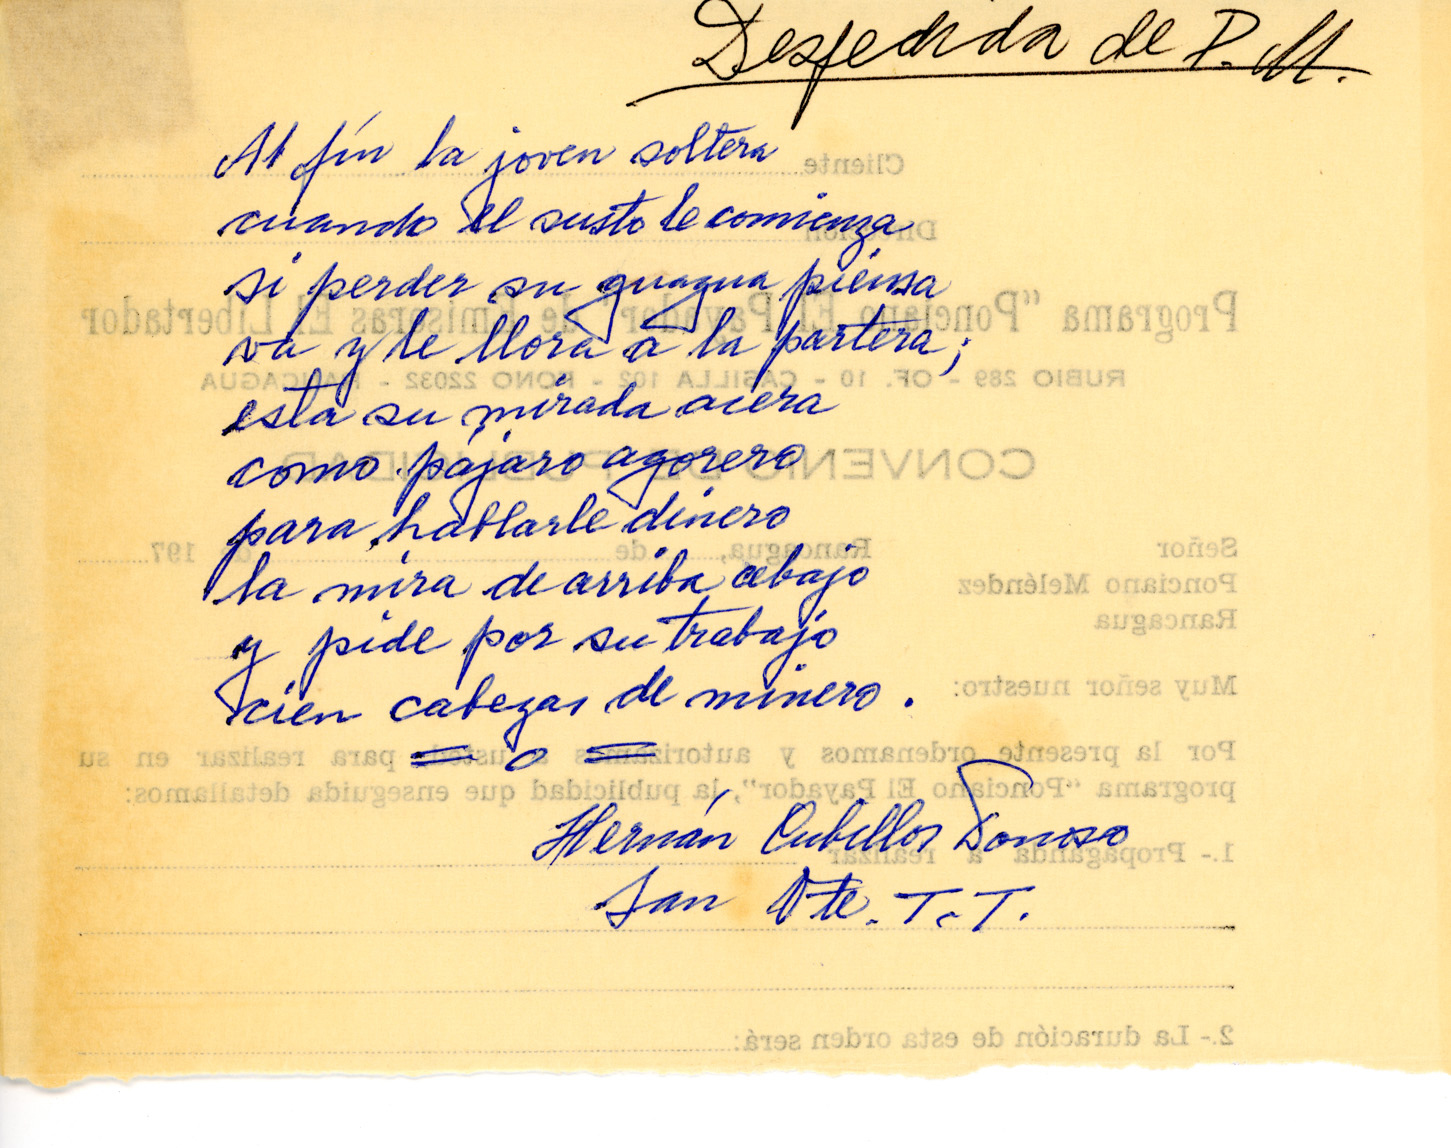 Despedida de P. M.
Al fín la joven soltera
cuando el susto le comienza
si perder su guagua piensa
va y le llora a la partera;
esta su mirada acera
como pájaro agorero
para hablarle dinero
la mira de arriba abajo
y pide por su trabajo
cien cabezas de minero.
= o =
Hernán Cubillos Donoso
San Vte. T. T.
Cliente
Dirección
Programa "Ponciano El Payador" de Emisoras El Libertador
RUBIO 289 - OF. 10 - CASILLA 102 - FONO 22032 - RANCAGUA
CONVENIO DE PUBLICIDAD
Rancagua, de de 197
Señor
Ponciano Meléndez
Rancagua
Muy señor nuestro:
Por la presente ordenamos y autorizamos a usted, para realizar en su
programa "Ponciano El Payador", la publicidad que enseguida detallamos:
1.- Propaganda a realizar
2.- La duración de esta orden será: